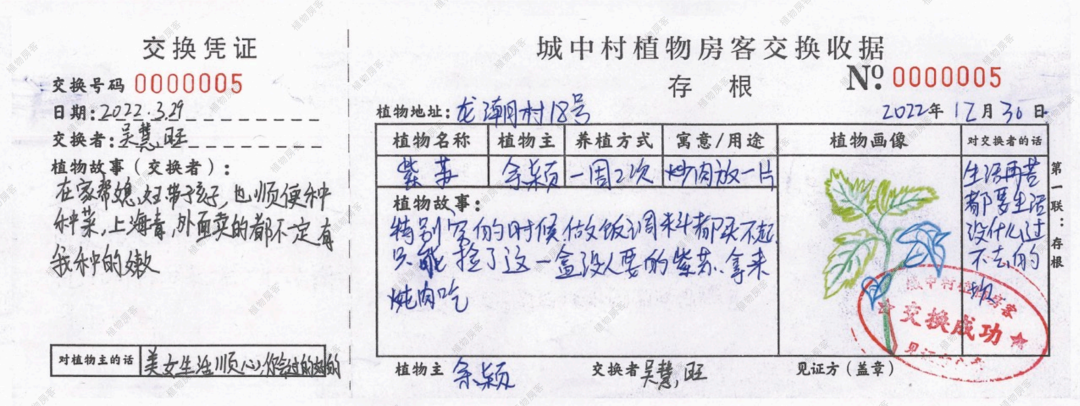 交换凭证
交换号码 0000005
日期: 2022.3.29
交换者: 吴慧旺
植物故事(交换者):
在家帮媳妇带孩子,也顺便种
种菜,上海青,外面卖的都不一定有
我种的嫩
对植物主的话 美女生活顺心,你会过的好的
城中村植物房客交换收据
存根
No. 0000005
植物地址: 龙潮村18号
2022年12月30日
植物名称 植物主 养植方式 寓意/用途 植物画像 对交换者的话
紫苏 余颖 一周2次 炒肉放一片
生活再苦
都要生活
没什么过
不去的
植物故事:
特别穷的时候做饭调来斗都买不起
只能捡了这一盒没人要的紫苏.拿来
炖肉吃
第一联:存根
城中村植物房客
交换成功
植物主 余颖 交换者 吴慧旺 见证方(盖章)
植物房客